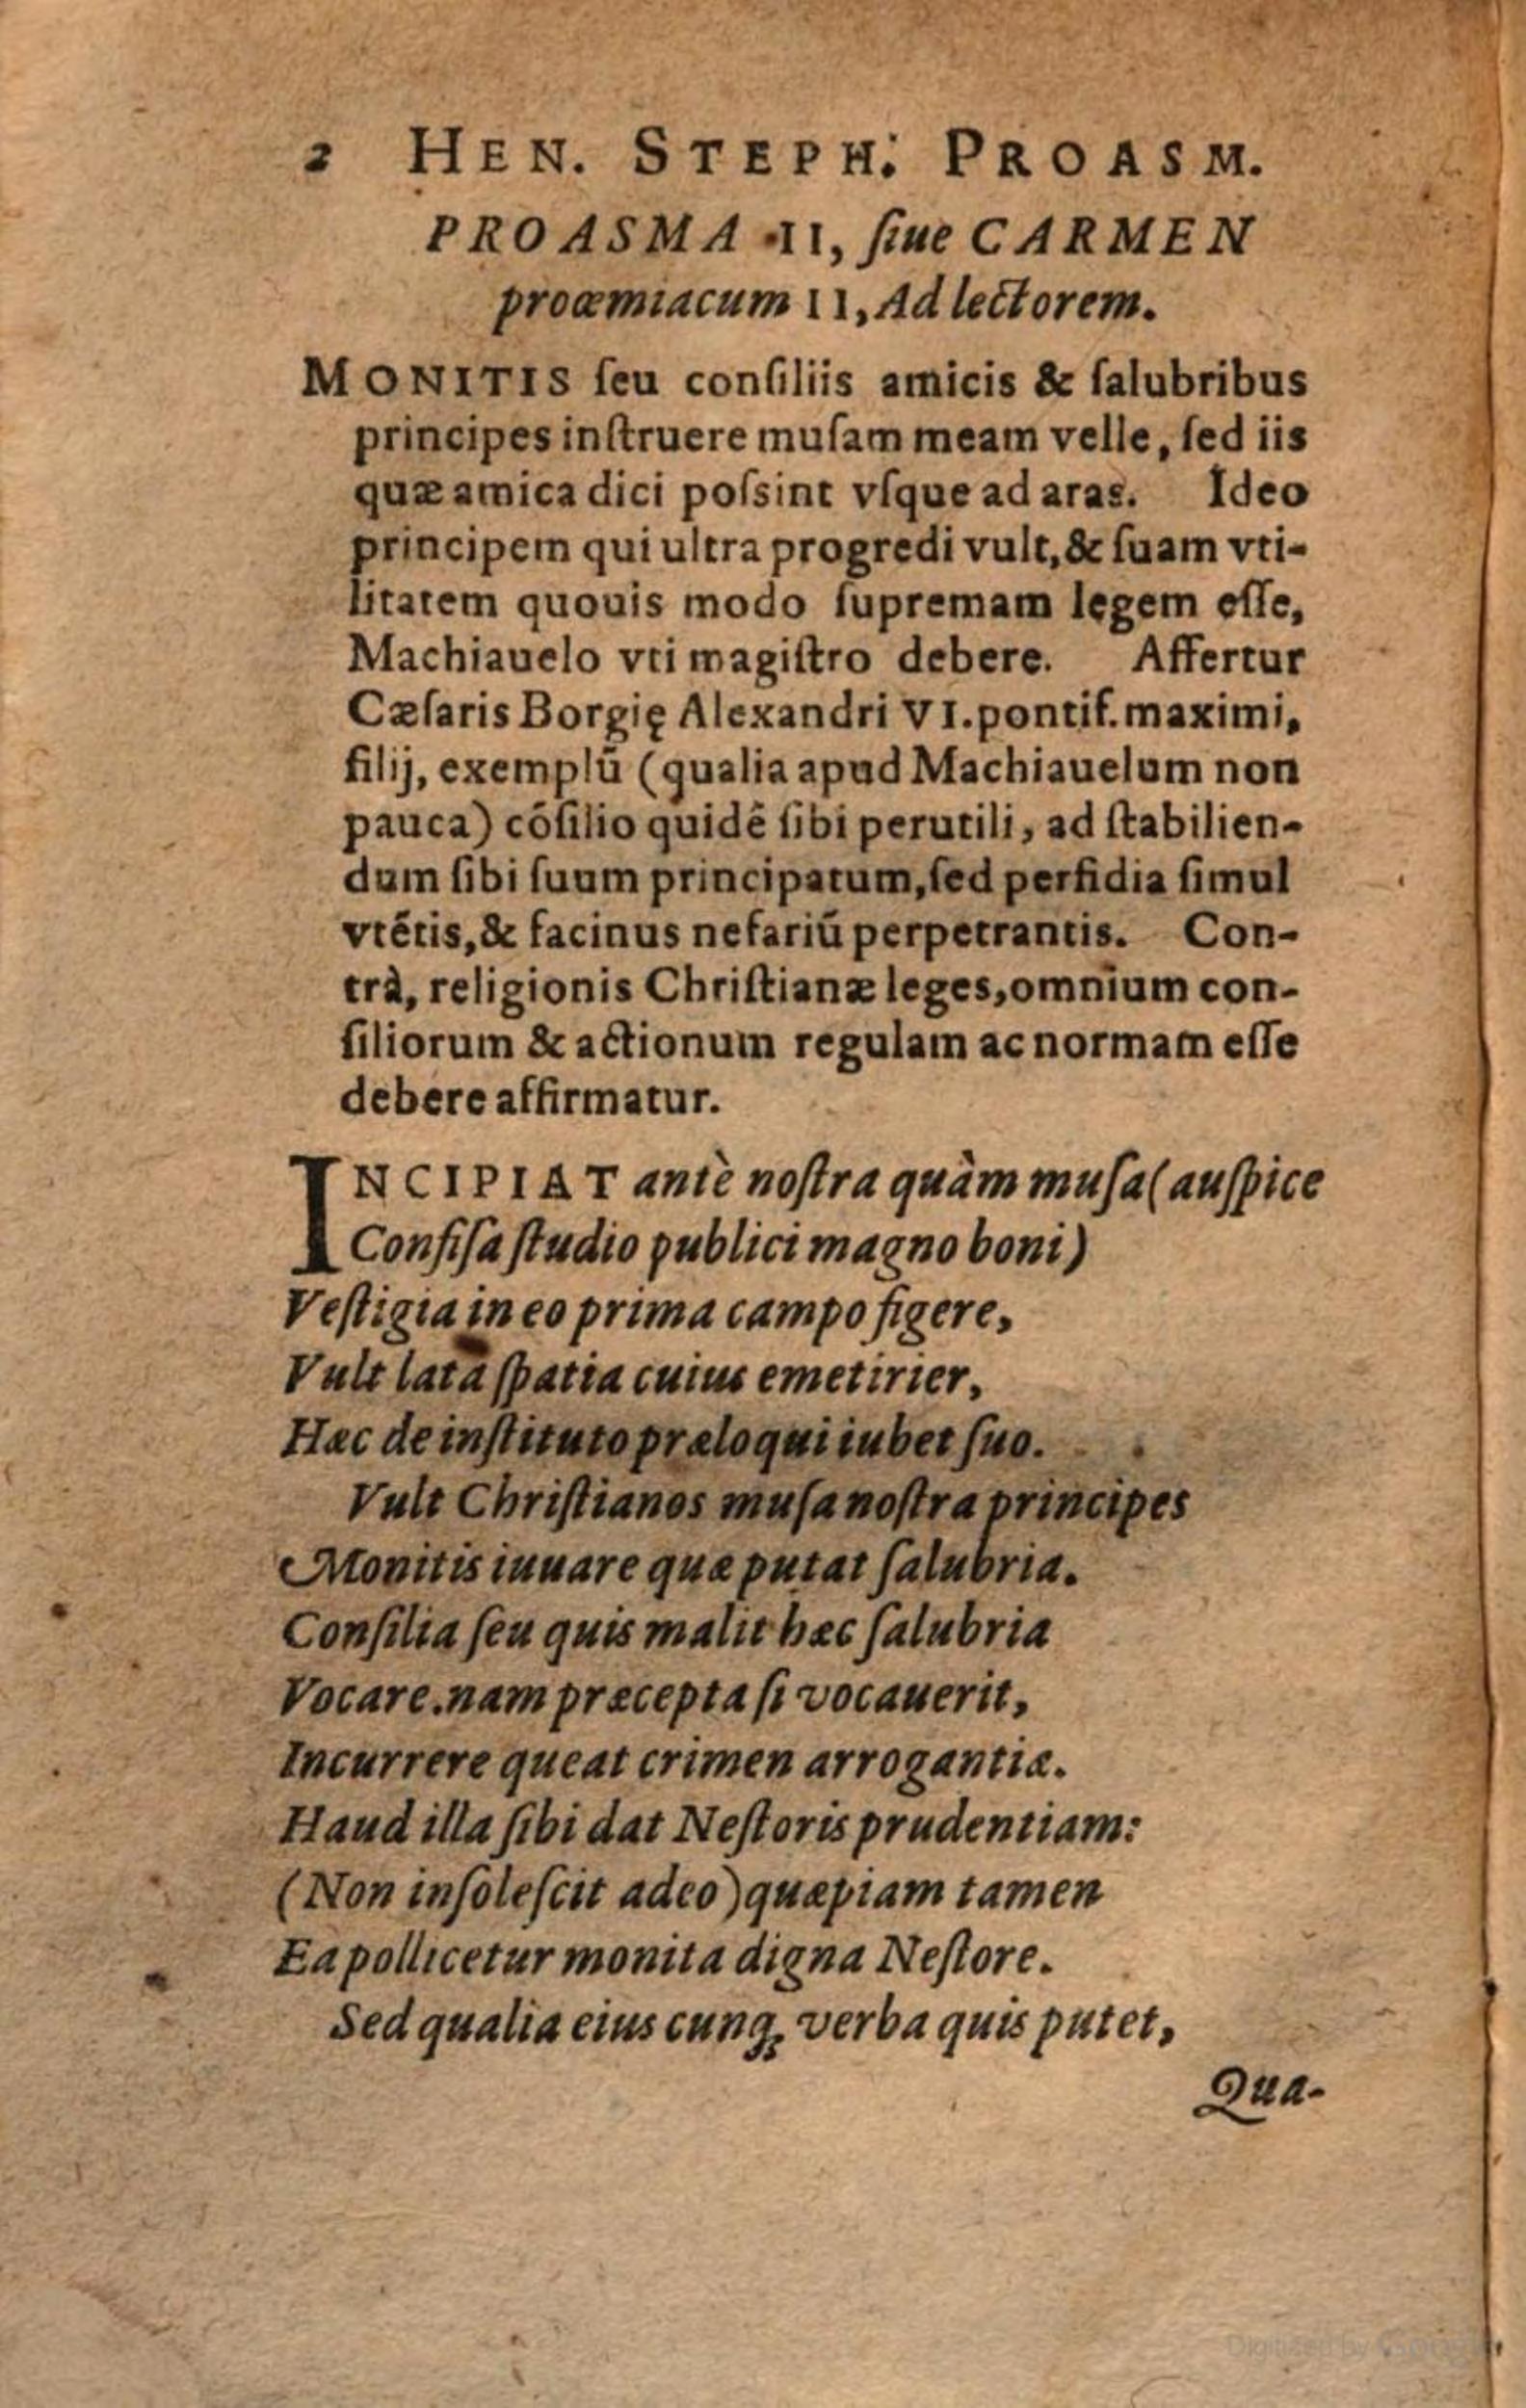 2 HEN. STEPH. PROASM.
PROASMA II, ſiue CARMEN
proœmiacum II, Ad lectorem.
MONITIS ſeu conſiliis amicis & ſalubribus
principes inſtruere muſam meam velle, ſed iis
quæ amica dici poſsint vſque ad aras. Ideo
principem qui ultra progredi vult, & ſuam vti-
litatem quouis modo ſupremam legem eſſe,
Machiauelo vti magiſtro debere. Affertur
Cæſaris Borgię Alexandri VI. pontif. maximi,
filij, exemplū (qualia apud Machiauelum non
pauca) cōſilio quidē ſibi perutili, ad ſtabilien-
dum ſibi ſuum principatum, ſed perfidia ſimul
vtētis, & facinus nefariū perpetrantis. Con-
trà, religionis Chriſtianæ leges, omnium con-
ſiliorum & actionum regulam ac normam eſſe
debere affirmatur.
INCIPIAT antè noſtra quàm muſa (auſpice
Confiſa ſtudio publici magno boni)
Veſtigia in eo prima campo figere,
Vult lata ſpatia cuius emetirier,
Hæc de inſtituto præloqui iubet ſuo.
Vult Chriſtianos muſa noſtra principes
Monitis iuuare quæ putat ſalubria.
Conſilia ſeu quis malit hæc ſalubria
Vocare. nam præcepta ſi vocauerit,
Incurrere queat crimen arrogantiæ.
Haud illa ſibi dat Neſtoris prudentiam:
(Non inſoleſcit adeo) quæpiam tamen
Ea pollicetur monita digna Neſtore.
Sed qualia eius cunq; verba quis putet,
Qua-
Digitized by Google